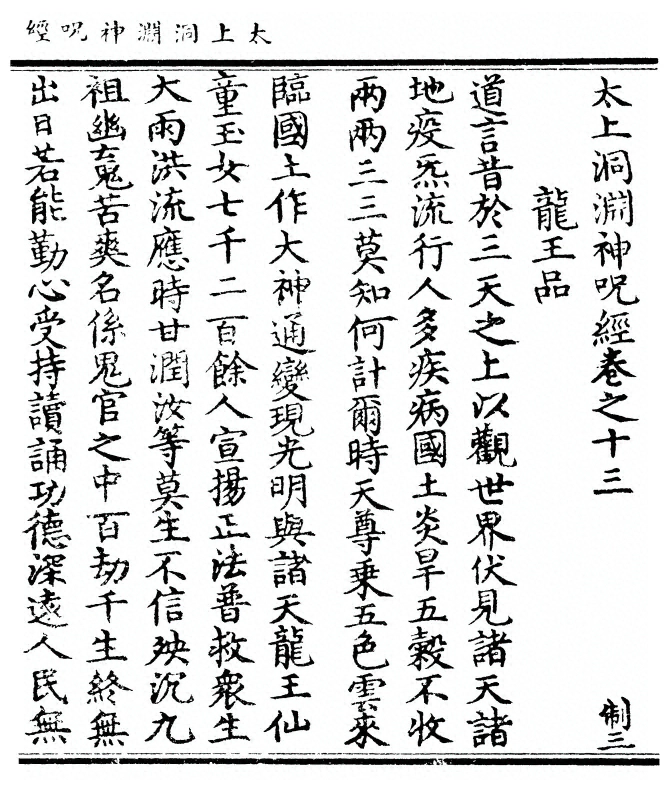 太上洞淵神呪經
太上洞淵神呪經卷之十三
制三
龍王品
道言昔於三天之上以觀世界伏見諸天諸
地疫炁流行人多疾病國土炎旱五穀不收
兩兩三三莫知何計爾時天尊乗五色雲來
臨國土作大神通變現光明與諸天龍王仙
童玉女七千二百餘人宣揚正法普救衆生
大雨洪流應時甘潤汝等莫生不信殃沉九
祖幽䰟苦爽名係鬼官之中百劫千生終無
出日若能勤心受持讀誦功德深遠人民無